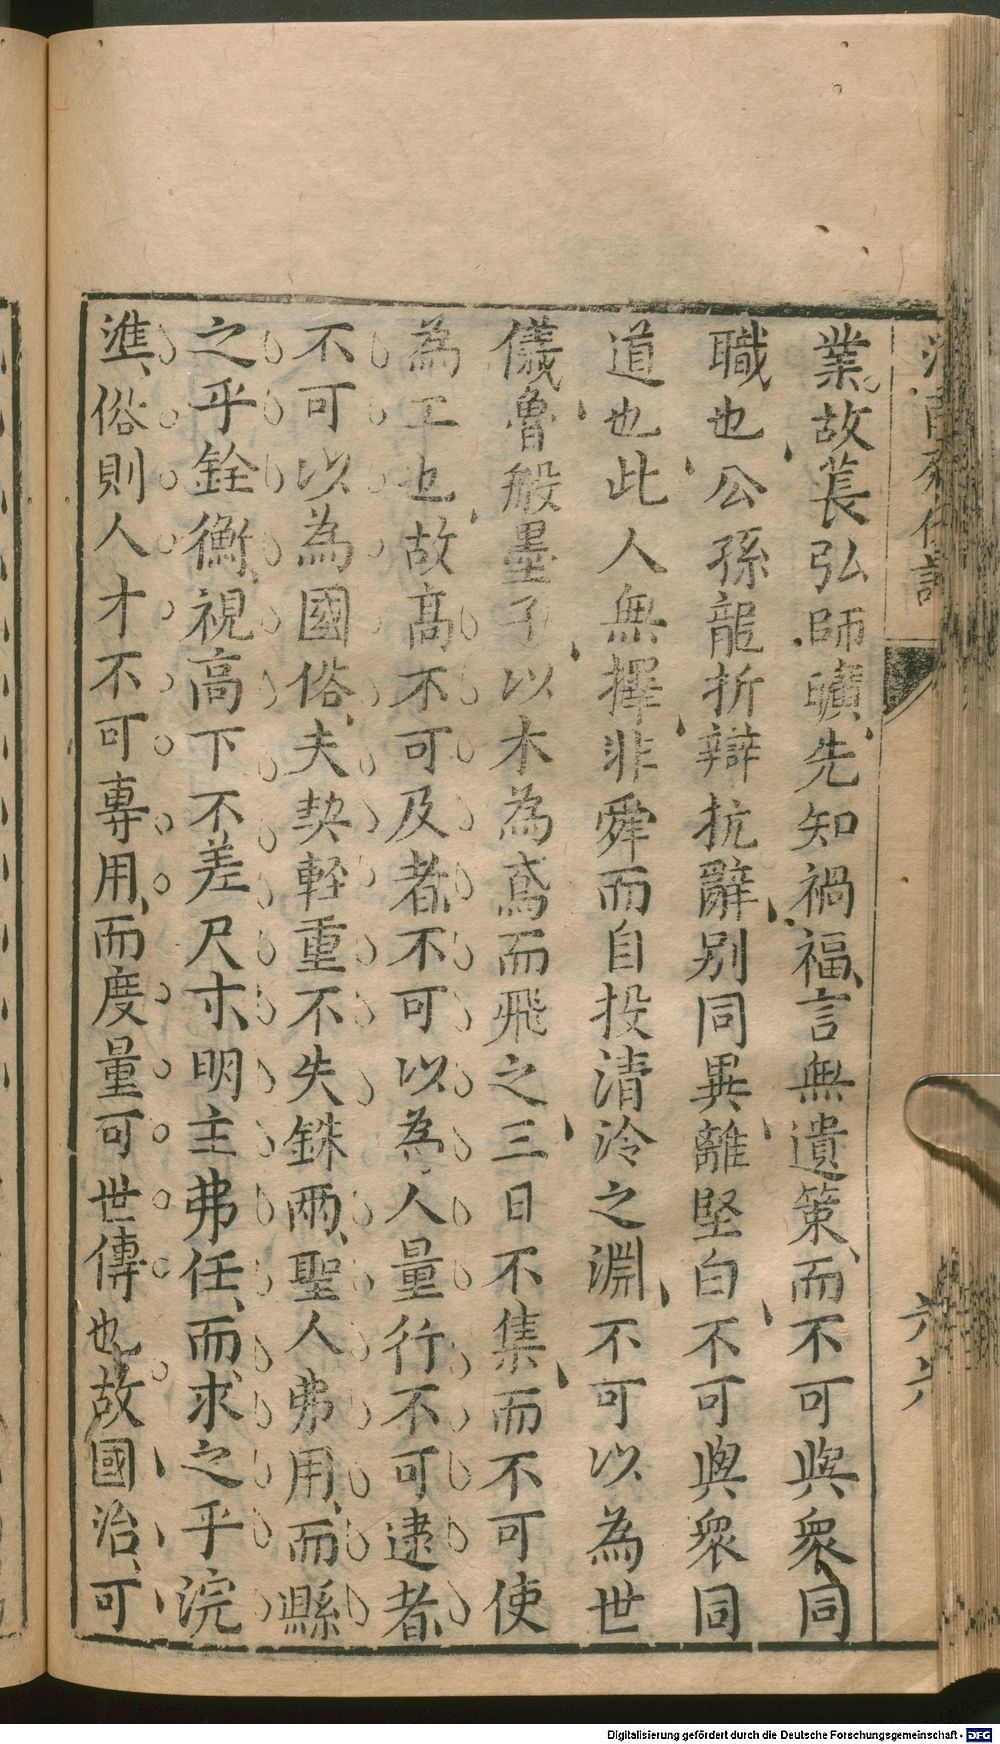 業故萇弘師曠先知禍福言無遺策而不可與衆同
職也公孫龍折辯抗辭別同異離堅白不可與衆同
道也北人無擇非舜而自投清泠之淵不可以為世
儀魯般墨子以木為鳶而飛之三日不集而不可使
為工也故高不可及者不可以為人量行不可逮者
不可以為國俗夫契輕重不失銖兩聖人弗用而縣
之乎銓衡視高下不差尺寸明主弗任而求之乎浣
準俗則人才不可專用而度量可世傳也故國治可
六六
Digitalisierung gefördert durch die Deutsche Forschungsgemeinschaft - DFG